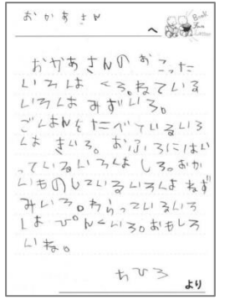 おかあさん
へ
おかあさんのおこった
いろはくろ。ねている
いろはみずいろ。
ごはんをたべているいろ
はきいろ。おふろにはい
っているいろはしろ。おか
いものしているいろはねず
みいろ。わらっているいろ
はぴんくいろ。おもしろ
いね。
ちひろ
より